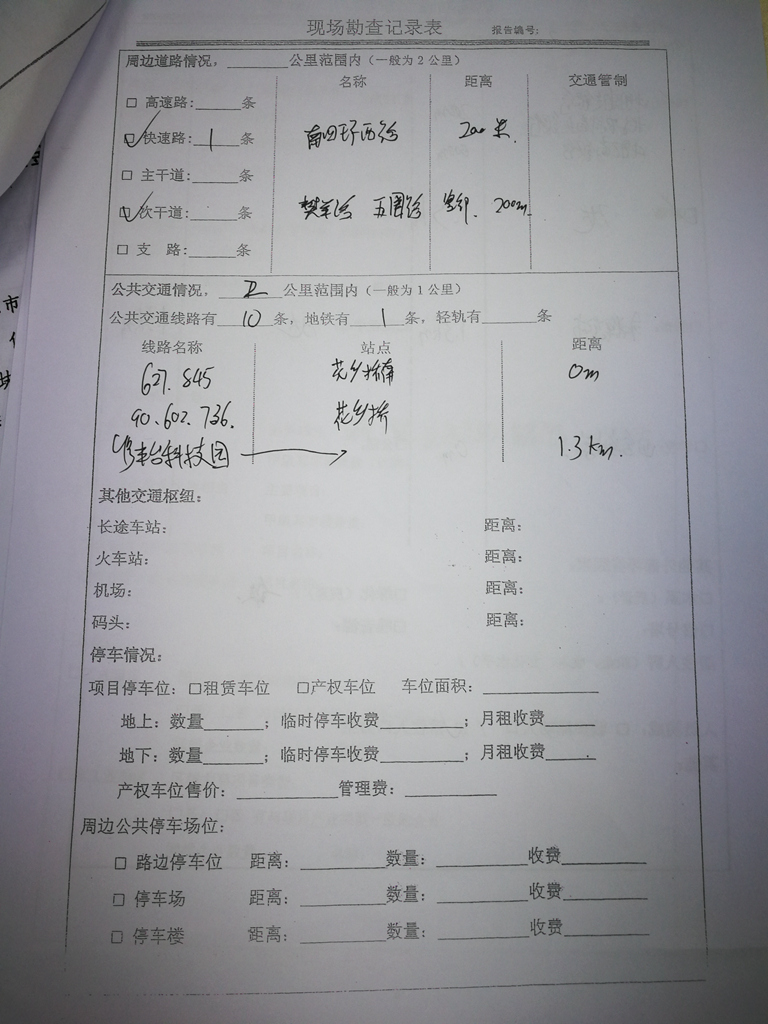 现场勘查记录表 报告编号:
周边道路情况,______公里范围内(一般为2公里)
名称 距离 交通管制
□ 高速路:_____条
☑ 快速路:1条 南四环西路 200米.
□ 主干道:_____条
☑ 次干道:_____条 樊羊路 五圈路 紧邻. 200m.
□ 支 路:_____条
公共交通情况,______公里范围内(一般为1公里)
公共交通线路有 10 条,地铁有 1 条,轻轨有______条
线路名称 站点 距离
627. 845 花乡桥南 0m
90. 602. 736. 花乡桥
丰台科技园 → 1.3km.
其他交通枢纽:
长途车站: 距离:
火车站: 距离:
机场: 距离:
码头: 距离:
停车情况:
项目停车位: □租赁车位 □产权车位 车位面积:__________
地上:数量______;临时停车收费________;月租收费_____
地下:数量______;临时停车收费________;月租收费_____.
产权车位售价:__________管理费:_________
周边公共停车场位:
□ 路边停车位 距离:________数量:________收费________
□ 停车场 距离:________数量:________收费________
□ 停车楼 距离:________数量:________收费________